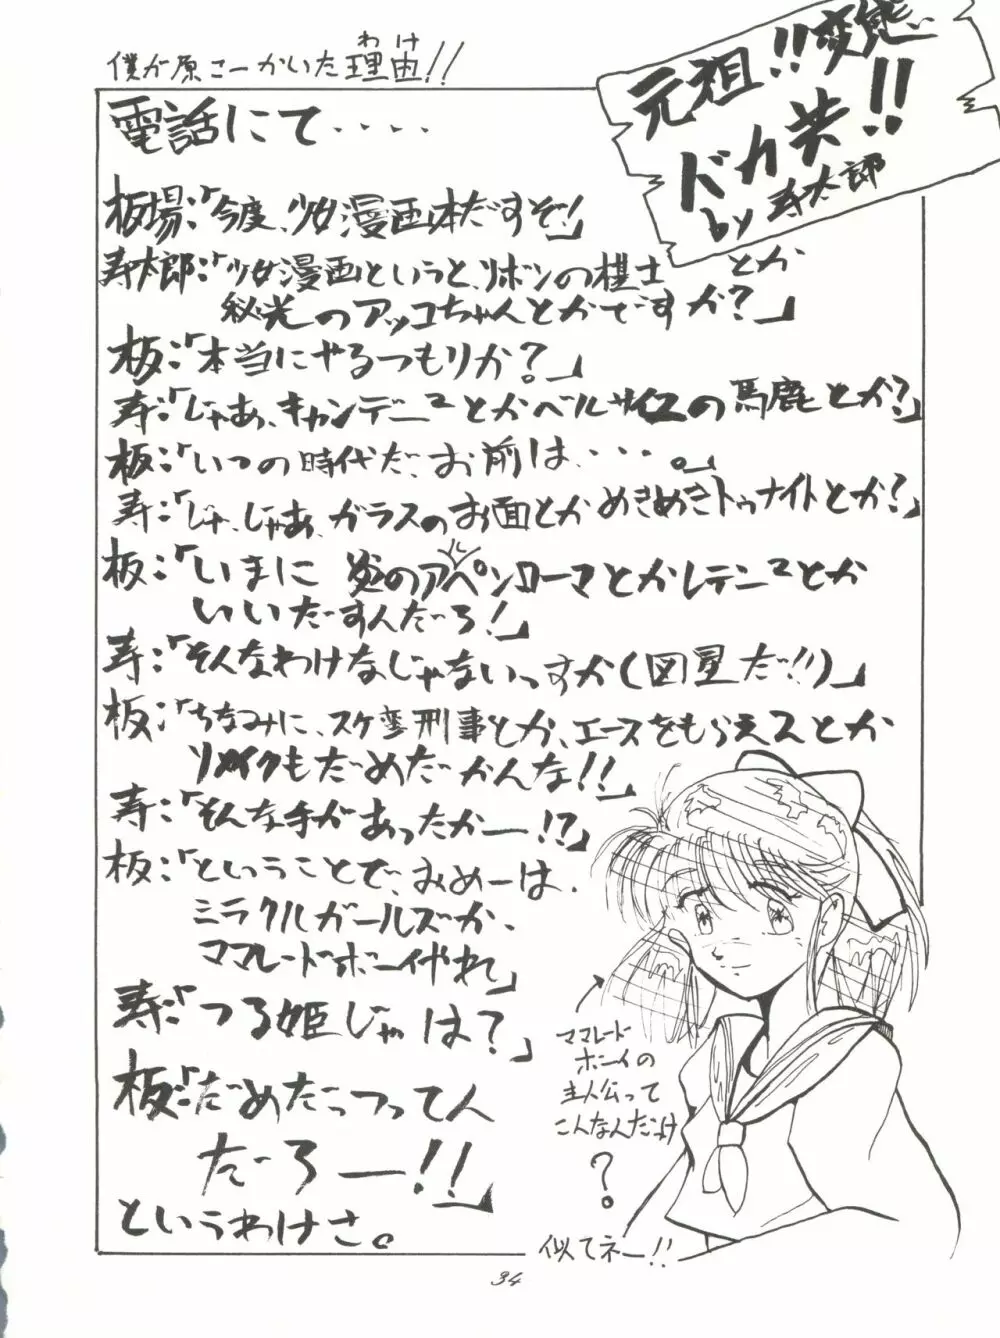 僕が原こーかいた理由!!
わけ
元祖!!変態
ドカ弁!!
by 寿太郎
電話にて・・・・
板場:「今度、少女漫画本だすぞ!」
寿太郎:「少女漫画というと、リボンの棋士とか
秘光のアッコちゃんとかですか?」
板:「本当にやるつもりか?」
寿:「じゃあ、キャンデーニーとかベルサイユの馬鹿とか?」
板:「いつの時代だ、お前は・・・。」
寿:「じゃ、じゃあ、ガラスのお面とかめきめきトゥナイトとか?」
板:「いまに 炎のアルペンローマとかレテニーとか
いいだすんだろ!」
寿:「そんなわけなじゃないっすか(図星だ!!)」
板:「ちなみに、スケ変刑事とか、エースをもらえ2とか
リメイクもだめだかんな!!」
寿:「そんな手があったかー!?」
板:「ということで、おめーは、
ミラクルガールズか、
ママレードボーイやれ」
寿:「つる姫じゃは?」
板:「だめだっつってん
だろー!!」
というわけさ。
ママレード
ボーイの
主人公って
こんなんだっけ
?
似てネー!!
34